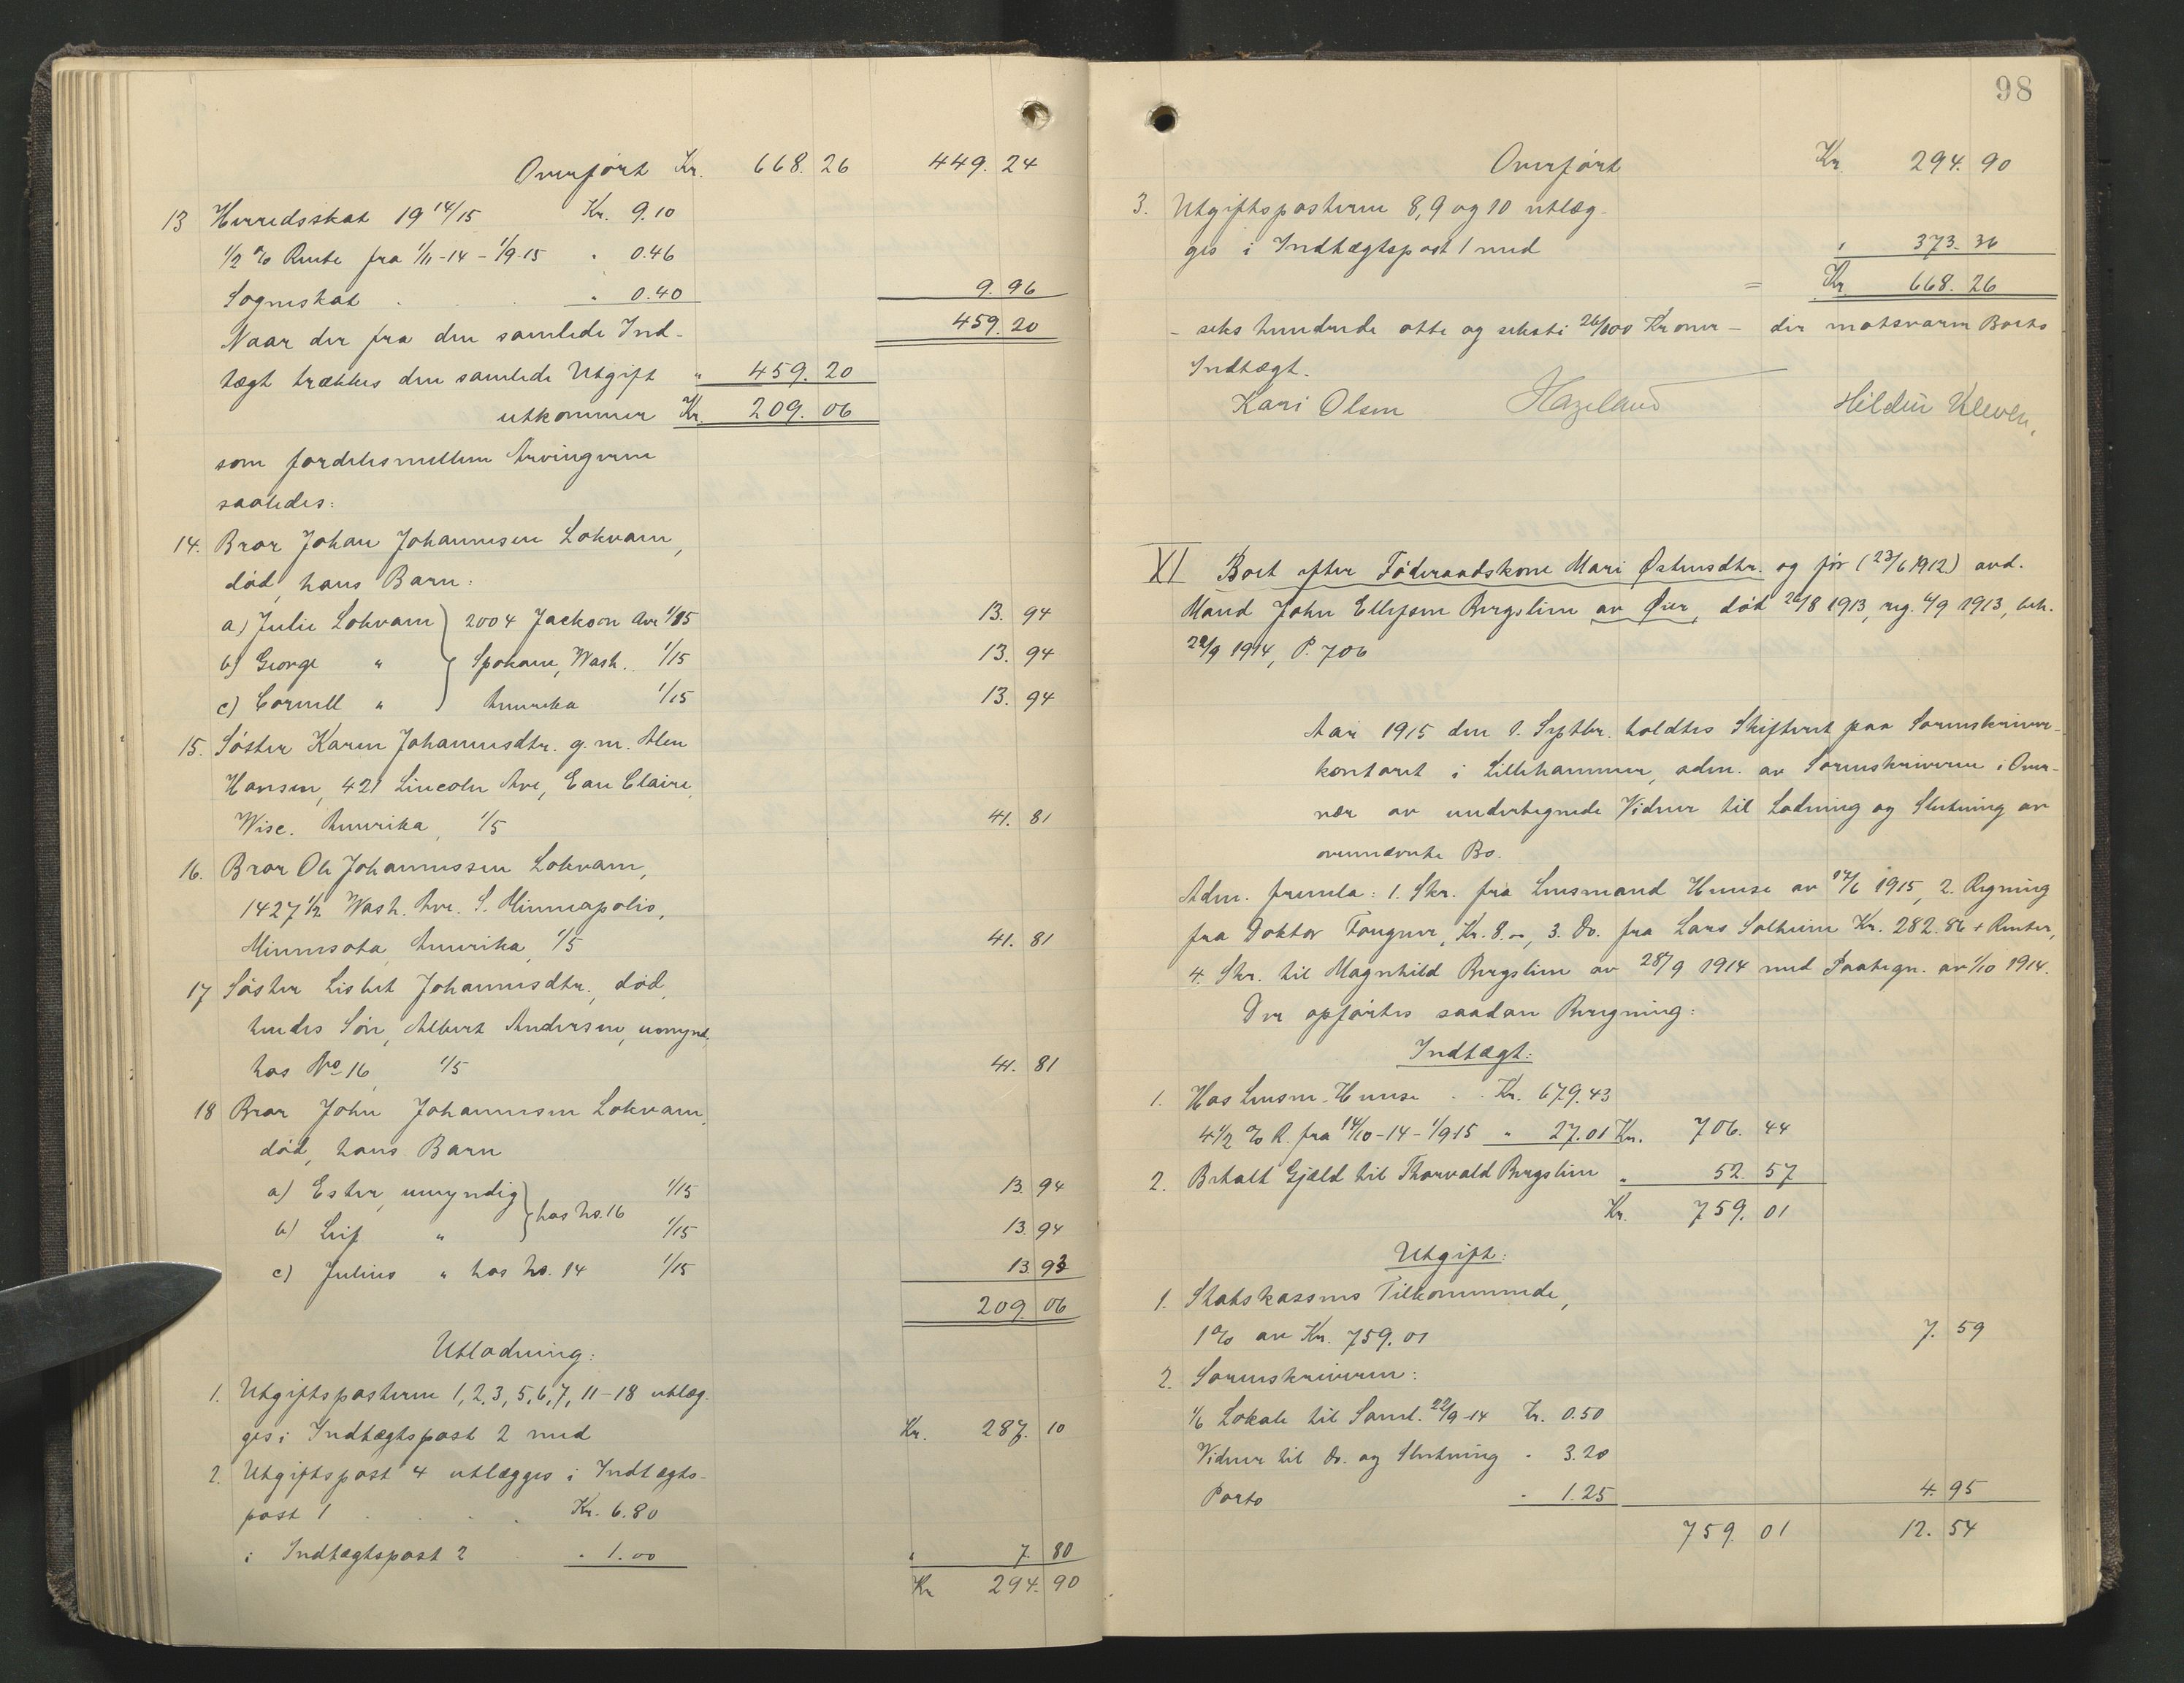 Overført Kr. 668.26 449.24
13 Herredsskat 19 14/15 Kr. 9.10
1/2 % Rente fra 1/11-14 - 1/9-15 " 0.46
Sogneskat . . " 0.40 9.96
459.20
Naar der fra den samlede Ind-
tægt trækkes den samlede Utgift " 459.20
utkommer Kr. 209.06
som fordeles mellem Arvingerne
saaledes:
14. Bror Johan Johannesen Lokvam,
død, hans Barn:
a) Julie Lokvam } 2004 Jackson Ave 1/15 13.94
b) George " } Spokane, Wash. 1/15 13.94
c) Cornell " } Amerika 1/15 13.94
15. Søster Karen Johannesdtr. g.m. Alen
Hansen, 421 Lincoln Ave, Eau Claire,
Wisc. Amerika, 1/5 41.81
16. Bror Ole Johannessen Lokvam,
1427 1/2 Wash. Ave. S. Minneapolis,
Minnesota Amerika, 1/5 41.81
17 Søster Lisbet Johannesdtr., død,
hendes Søn, Albert Andersen, umynd.
hos No 16, 1/5 41.81
18 Bror John Johannesen Lokvam,
død, hans Barn
a) Ester, umyndig } 1/15 13.94
b) Leif " } hos no. 16 1/15 13.94
c) Julius " hos no. 14 1/15 13.93
209.06
Utlodning:
1. Utgiftsposterne 1, 2, 3, 5, 6, 7, 11-18 utlæg-
ges i Indtægtspost 2 med Kr. 287.10
2. Utgiftspost 4 utlægges i Indtægts-
post 1 . . . . Kr. 6.80
i Indtægtspost 2 " 1.00 " 7.80
Kr 294.90
98
Overført Kr. 294.90
3. Utgiftsposterne 8, 9 og 10 utlæg-
ges i Indtægtspost 1 med " 373.36
= Kr. 668.26
- seks hundrede otte og seksti 26/100 Kroner - der motsvarer Boets
Indtægt.
Kari Olsen Hazeland Hildur Kleven.
XI Boet efter Føderaadskone Mari Østensdtr. og før (23/6 1912) avd.
Mand John Ellefsen Bergslien av Øier, død 26/8 1913, reg. 4/9 1913, beh.
22/9 1914, P. 706
Aar 1915 den 1. Septbr. holdtes Skifteret paa Sorenskriver-
kontoret i Lillehammer, adm. av Sorenskriveren i Over-
vær av undertegnede Vidner til Lodning og Slutning av
ovennævnte Bo.
Adm. fremla: 1. Skr. fra Lensmand Hunse av 17/6 1915, 2. Regning
fra Doktor Fougner, Kr. 8.-, 3. Do. fra Lars Solheim Kr. 282.86 + Renter,
4. Skr. til Magnhild Bergslien av 28/9 1914 med Paategn. av 1/10 1914.
Der opførtes saadan Beregning:
Indtægt:
1. Hos Lensm. Hunse . . Kr. 679.43
4 1/2 % R. fra 14/10-14 - 1/9 15 " 27.01 Kr. 706.44
2. Betalt Gjæld til Thorvald Bergslien " 52.57
Kr. 759.01
Utgift:
1. Statskassens Tilkommende,
1 % av Kr. 759.01 7.59
2. Sorenskriveren:
1/6 Lokale til Saml. 22/9-14 Kr. 0.50
Vidner til do. og Slutning " 3.20
Porto " 1.25 4.95
759.01 12.54